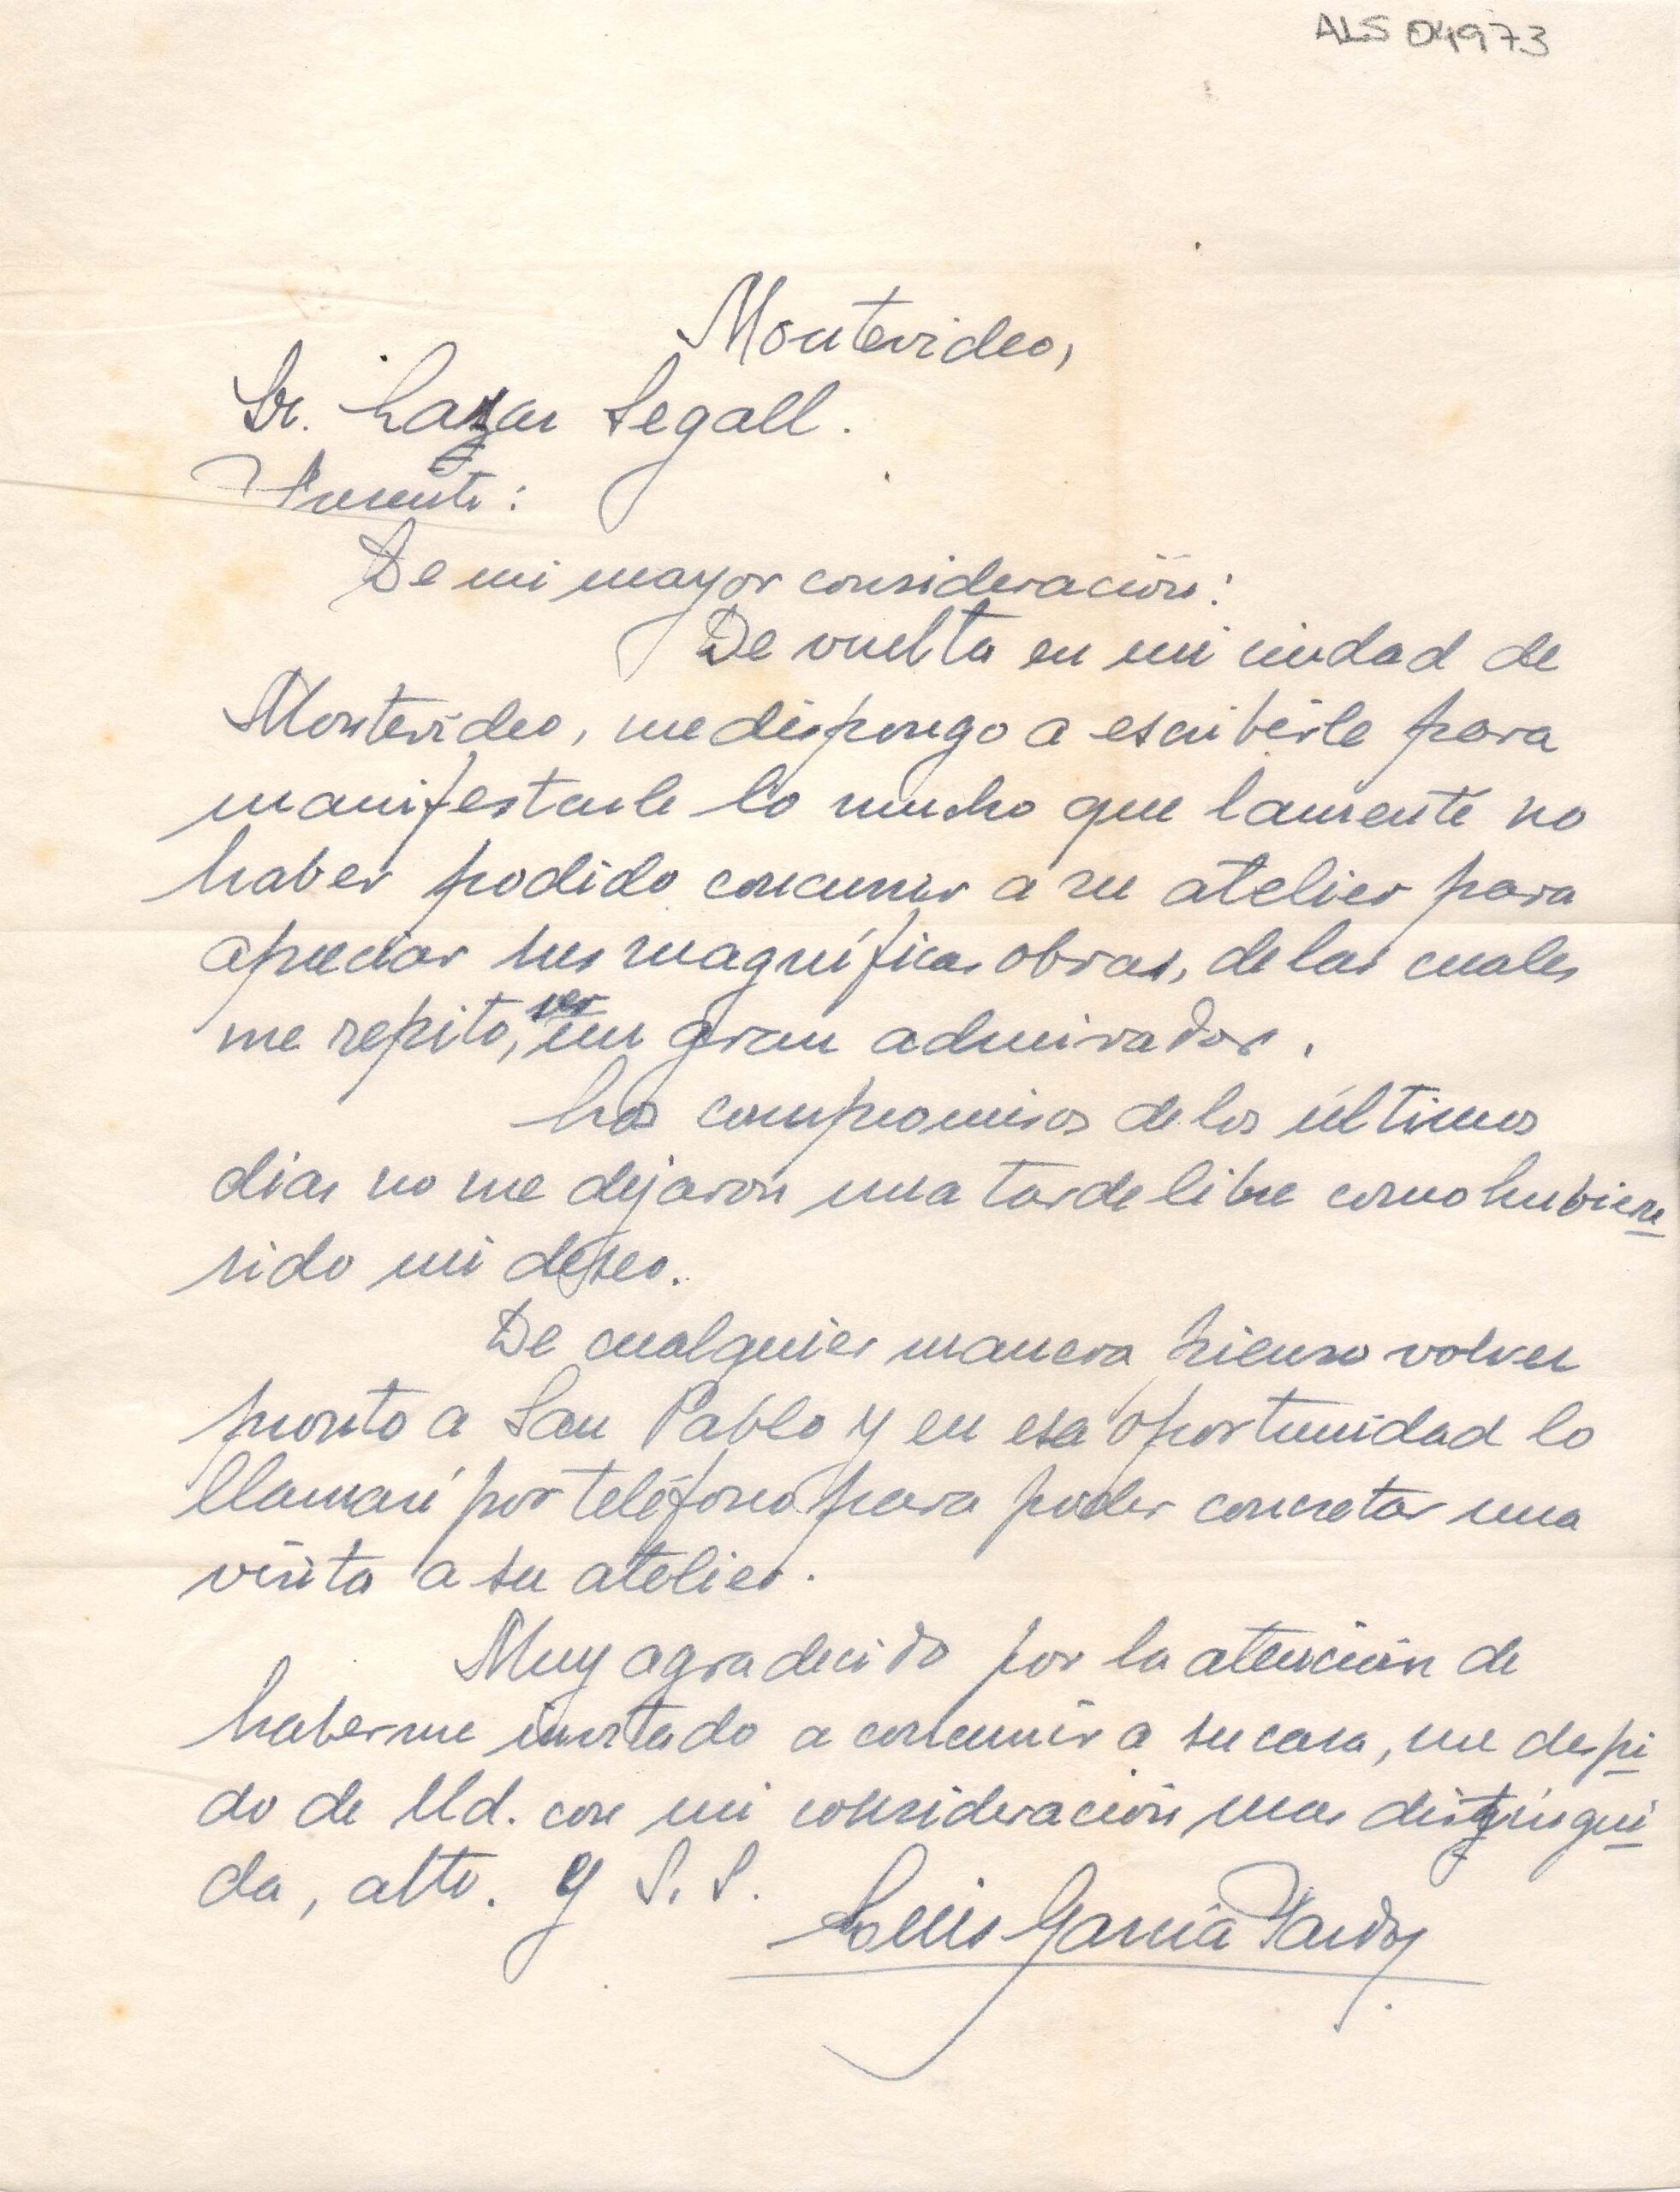 ALS 04973
Montevideo,
Sr. Lazar Segall.
Presente:
De mi mayor consideración:
De vuelta en mi ciudad de
Montevideo, me dispongo a escribirle para
manifestarle lo mucho que lamenté no
haber podido concurrir a su atelier para
apreciar sus magníficas obras, de las cuales
me repito, ser un gran admirador.
Los compromisos de los últimos
dias no me dejaron una tarde libre como hubiere
sido mi deseo.
De cualquier manera pienso volver
pronto a San Pablo y en esa oportunidad lo
llamaré por teléfono para poder concretar una
visita a su atelier.
Muy agradecido por la atención de
haberme invitado a concurrir a su casa, me despi
do de Ud. con mi consideración mas distingui
da, atto. y S. S.
Luis García Pardo